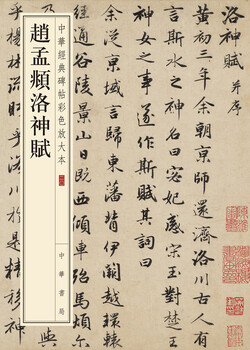 趙孟頫洛神賦
中華經典碑帖彩色放大本
中華書局
洛神賦 并序
黃初三年余朝京師還濟洛川古人有
言斯水之神名曰宓妃感宋玉對楚王
神女之事遂作斯賦其詞曰
余從京域言歸東藩背伊闕越轘轅
經通谷陵景山日既西傾車殆馬煩
乎楊林流